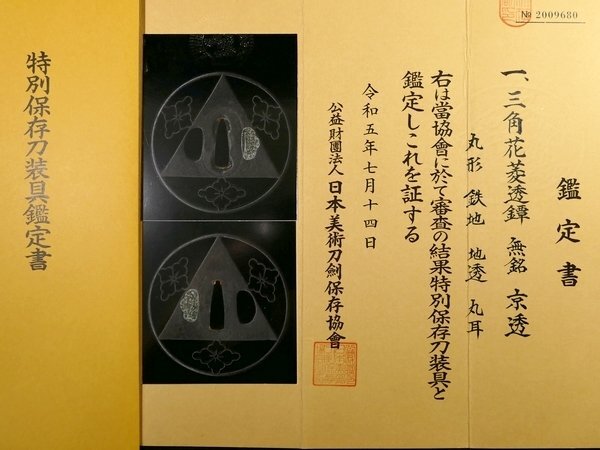 № 2009680
鑑定書
一、三角花菱透鐔　無銘　京透
丸形　鉄地　地透　丸耳
右は當協會に於て審査の結果特別保存刀装具と
鑑定しこれを証する
令和五年七月十四日
公益財團法人 日本美術刀劍保存協會
特別保存刀装具鑑定書